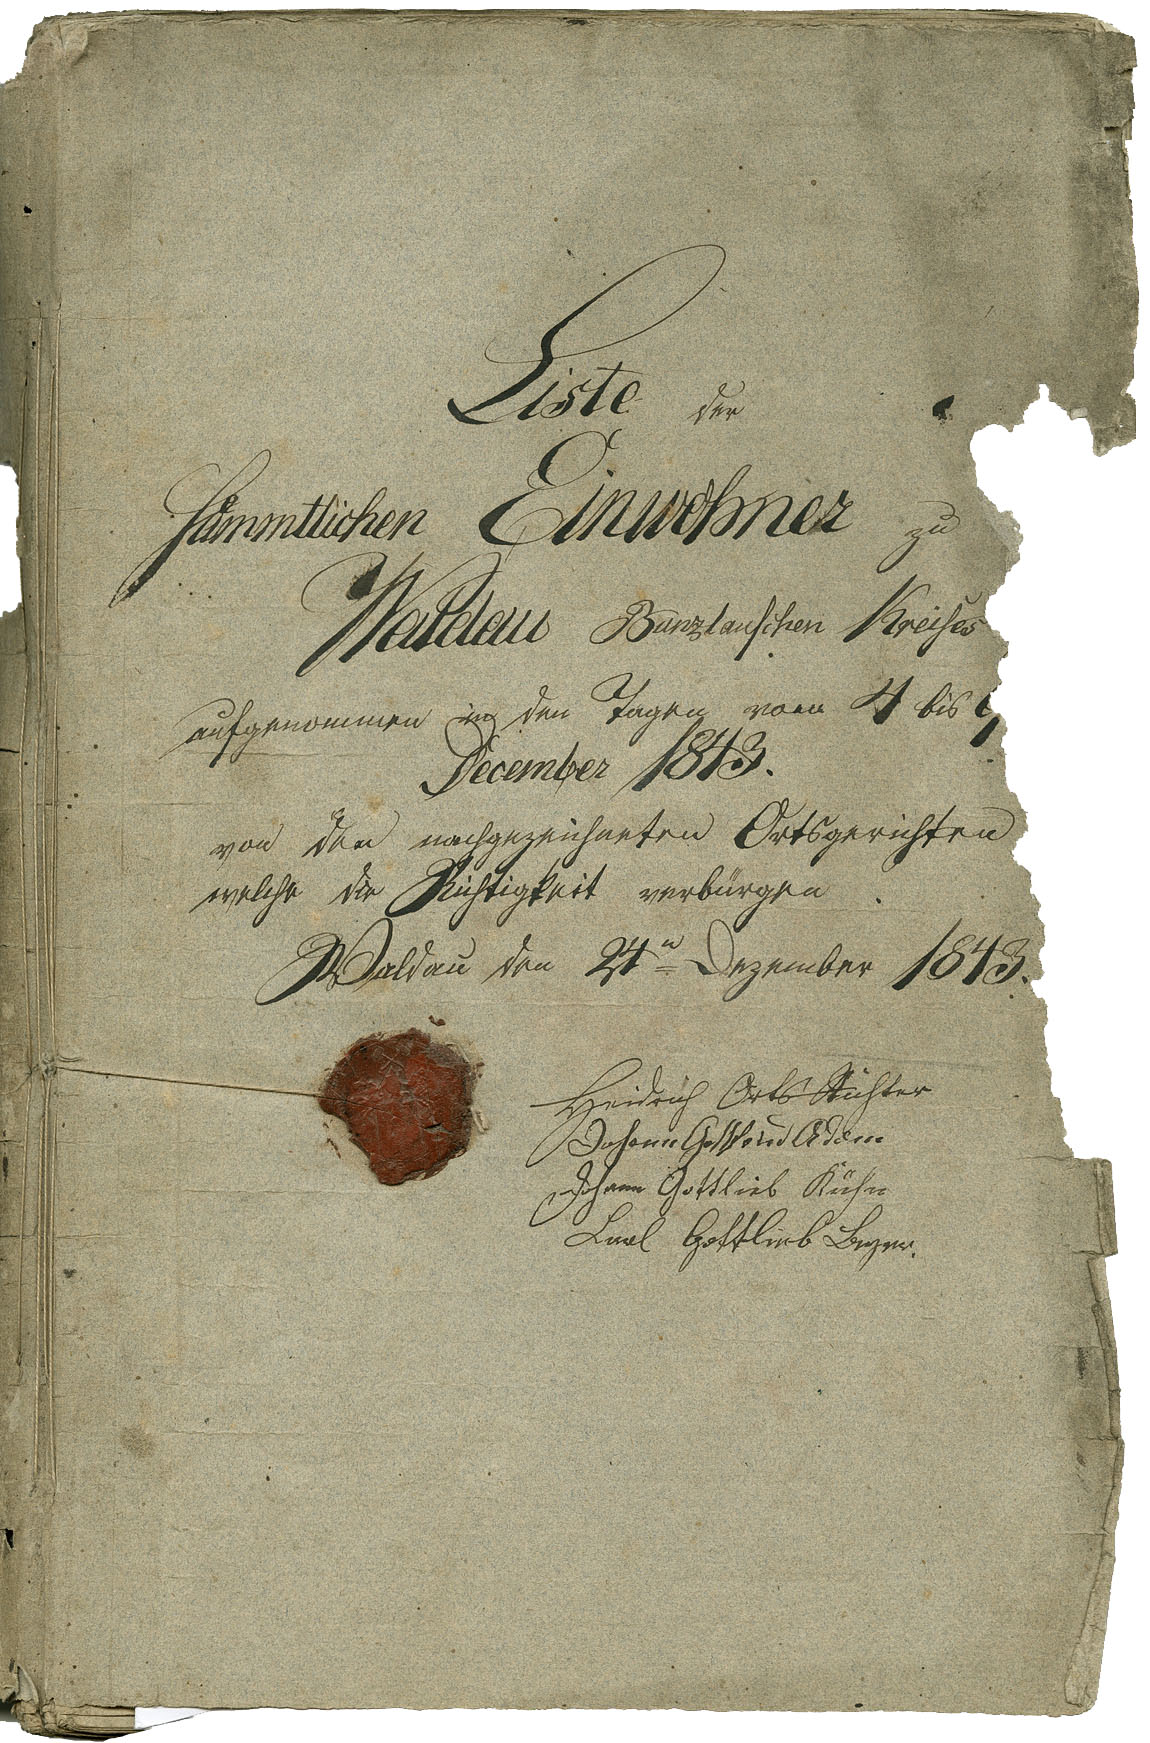 Liste der
sämmtlichen Einwohner zu
Waldau Bunzlauschen Kreises
aufgenommen in den Tagen vom 4 bis
December 1843.
von den nachgezeichneten Ortsgerichten
welche die Richtigkeit verbürgen.
Waldau den 24n Dezember 1843.
Heidrich Orts Richter
Johann Gottfried Adam
Johann Gottlieb Kühn
Carl Gottlieb Beyer.